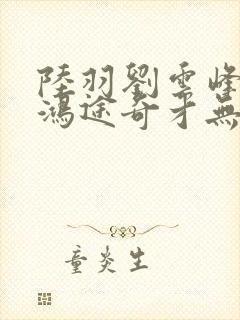 陸羽劉雲峰
鴻途奇才無
童炎生